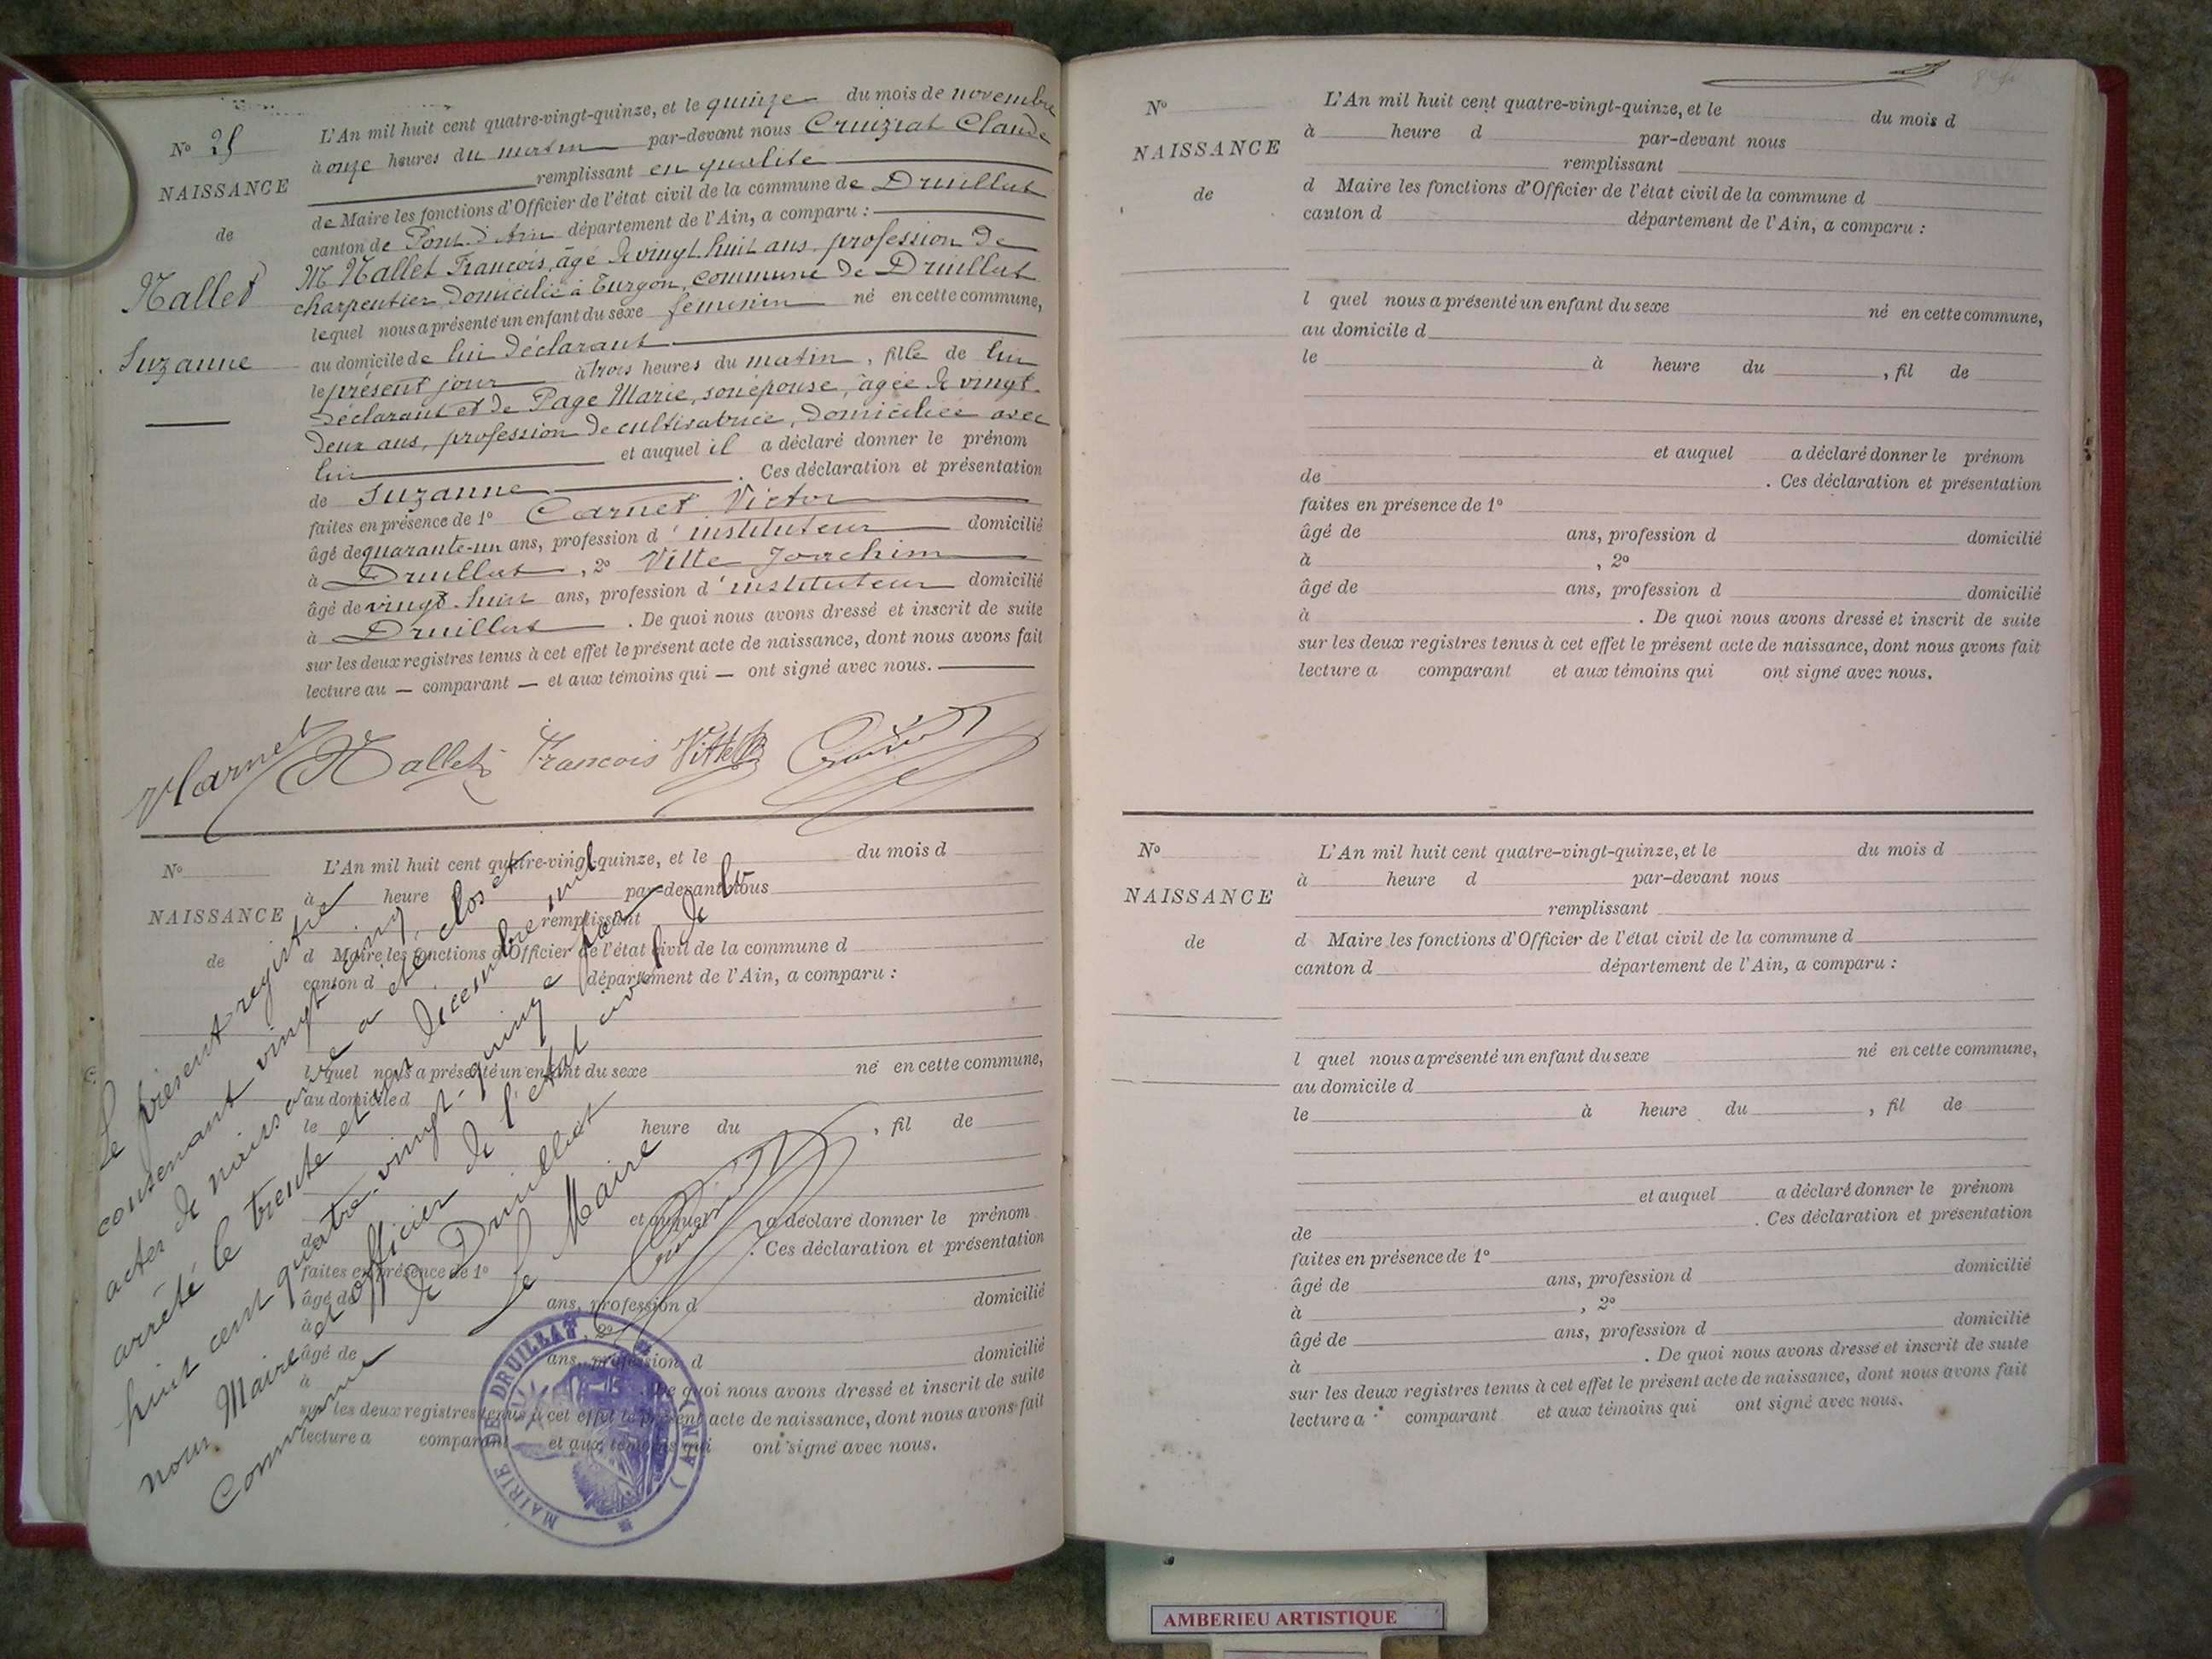 N° 25
NAISSANCE
de
Nallet
Suzanne
L'An mil huit cent quatre-vingt-quinze, et le quinze du mois de novembre
à onze heures du matin par-devant nous Cruiziat Claude
remplissant en qualité
de Maire les fonctions d'Officier de l'état civil de la commune de Druillat
canton de Pont d'Ain département de l'Ain, a comparu :
M Nallet Francois, âgé de vingt huit ans, profession de
charpentier, domicilié à Turgon, commune de Druillat
lequel nous a présenté un enfant du sexe féminin né en cette commune,
au domicile de lui déclarant
le présent jour à trois heures du matin, fille de lui
déclarant et de Page Marie, son épouse, âgée de vingt
deux ans, profession de cultivatrice, domiciliée avec
lui et auquel il a déclaré donner le prénom
de Suzanne . Ces déclaration et présentation
faites en présence de 1° Carnet Victor
âgé de quarante-un ans, profession d'instituteur domicilié
à Druillat, 2° Vitte Joachim
âgé de vingt-huit ans, profession d'instituteur domicilié
à Druillat . De quoi nous avons dressé et inscrit de suite
sur les deux registres tenus à cet effet le présent acte de naissance, dont nous avons fait
lecture au — comparant — et aux témoins qui — ont signé avec nous.
VCarnet Nallet Francois Vitte
N°
NAISSANCE
de
L'An mil huit cent quatre-vingt-quinze, et le du mois d
à heure par-devant nous
remplissant
d Maire les fonctions d'Officier de l'état civil de la commune d
canton d département de l'Ain, a comparu :
l quel nous a présenté un enfant du sexe né en cette commune,
au domicile d
le heure du , fil de
et auquel a déclaré donner le prénom
de . Ces déclaration et présentation
faites en présence de 1°
âgé de ans, profession d domicilié
à , 2°
âgé de ans, profession d domicilié
à . De quoi nous avons dressé et inscrit de suite
sur les deux registres tenus à cet effet le présent acte de naissance, dont nous avons fait
lecture a comparant et aux témoins qui ont signé avec nous.
Le présent registre
contenant vingt cinq
actes de naissance a été clos et
arrêté le trente et un décembre mil
huit cent quatre-vingt-quinze par
nous Maire et officier de l'état civil de la
Commune de Druillat
Le Maire
MAIRIE DE DRUILLAT (AIN)
N°
NAISSANCE
de
L'An mil huit cent quatre-vingt-quinze, et le du mois d
à heure d par-devant nous
remplissant
d Maire les fonctions d'Officier de l'état civil de la commune d
canton d département de l'Ain, a comparu :
l quel nous a présenté un enfant du sexe né en cette commune,
au domicile d
le à heure du , fil de
et auquel a déclaré donner le prénom
de . Ces déclaration et présentation
faites en présence de 1°
âgé de ans, profession d domicilié
à , 2°
âgé de ans, profession d domicilié
à . De quoi nous avons dressé et inscrit de suite
sur les deux registres tenus à cet effet le présent acte de naissance, dont nous avons fait
lecture a comparant et aux témoins qui ont signé avec nous.
N°
NAISSANCE
de
L'An mil huit cent quatre-vingt-quinze, et le du mois d
à heure d par-devant nous
remplissant
d Maire les fonctions d'Officier de l'état civil de la commune d
canton d département de l'Ain, a comparu :
l quel nous a présenté un enfant du sexe né en cette commune,
au domicile d
le à heure du , fil de
et auquel a déclaré donner le prénom
de . Ces déclaration et présentation
faites en présence de 1°
âgé de ans, profession d domicilié
à , 2°
âgé de ans, profession d domicilié
à . De quoi nous avons dressé et inscrit de suite
sur les deux registres tenus à cet effet le présent acte de naissance, dont nous avons fait
lecture a comparant et aux témoins qui ont signé avec nous.
AMBERIEU ARTISTIQUE